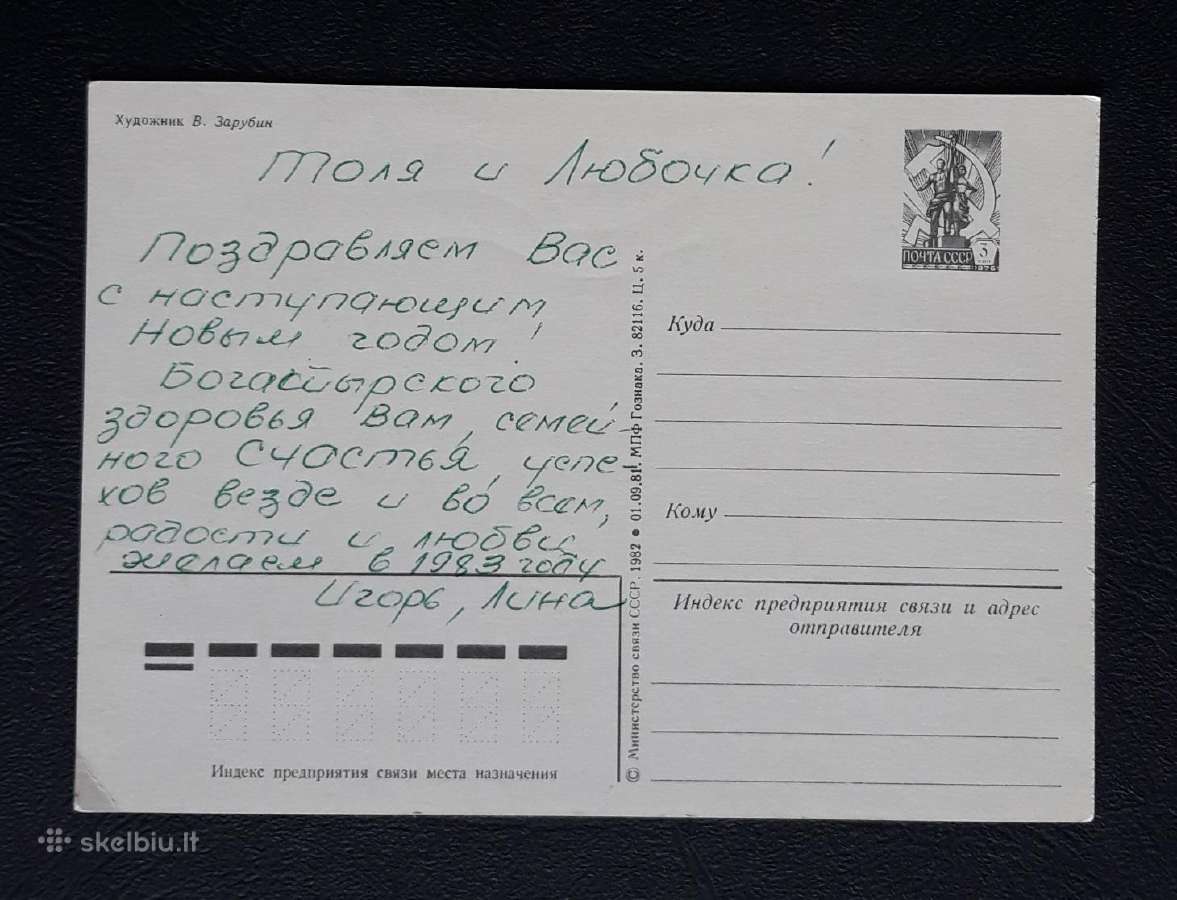 Художник В. Зарубин
Толя и Любочка!
Поздравляем Вас
с наступающим
Новым годом!
Богатырского
здоровья Вам, семей-
ного Счастья, успе-
хов везде и во всем,
радости и любви
желаем в 1983 году
Игорь, Лина
ПОЧТА СССР
3
1976
Куда
Кому
Индекс предприятия связи и адрес
отправителя
© Министерство связи СССР. 1982 ● 01.09.81. МПФ Гознака. З. 82116. Ц. 5 к.
Индекс предприятия связи места назначения
skelbiu.lt